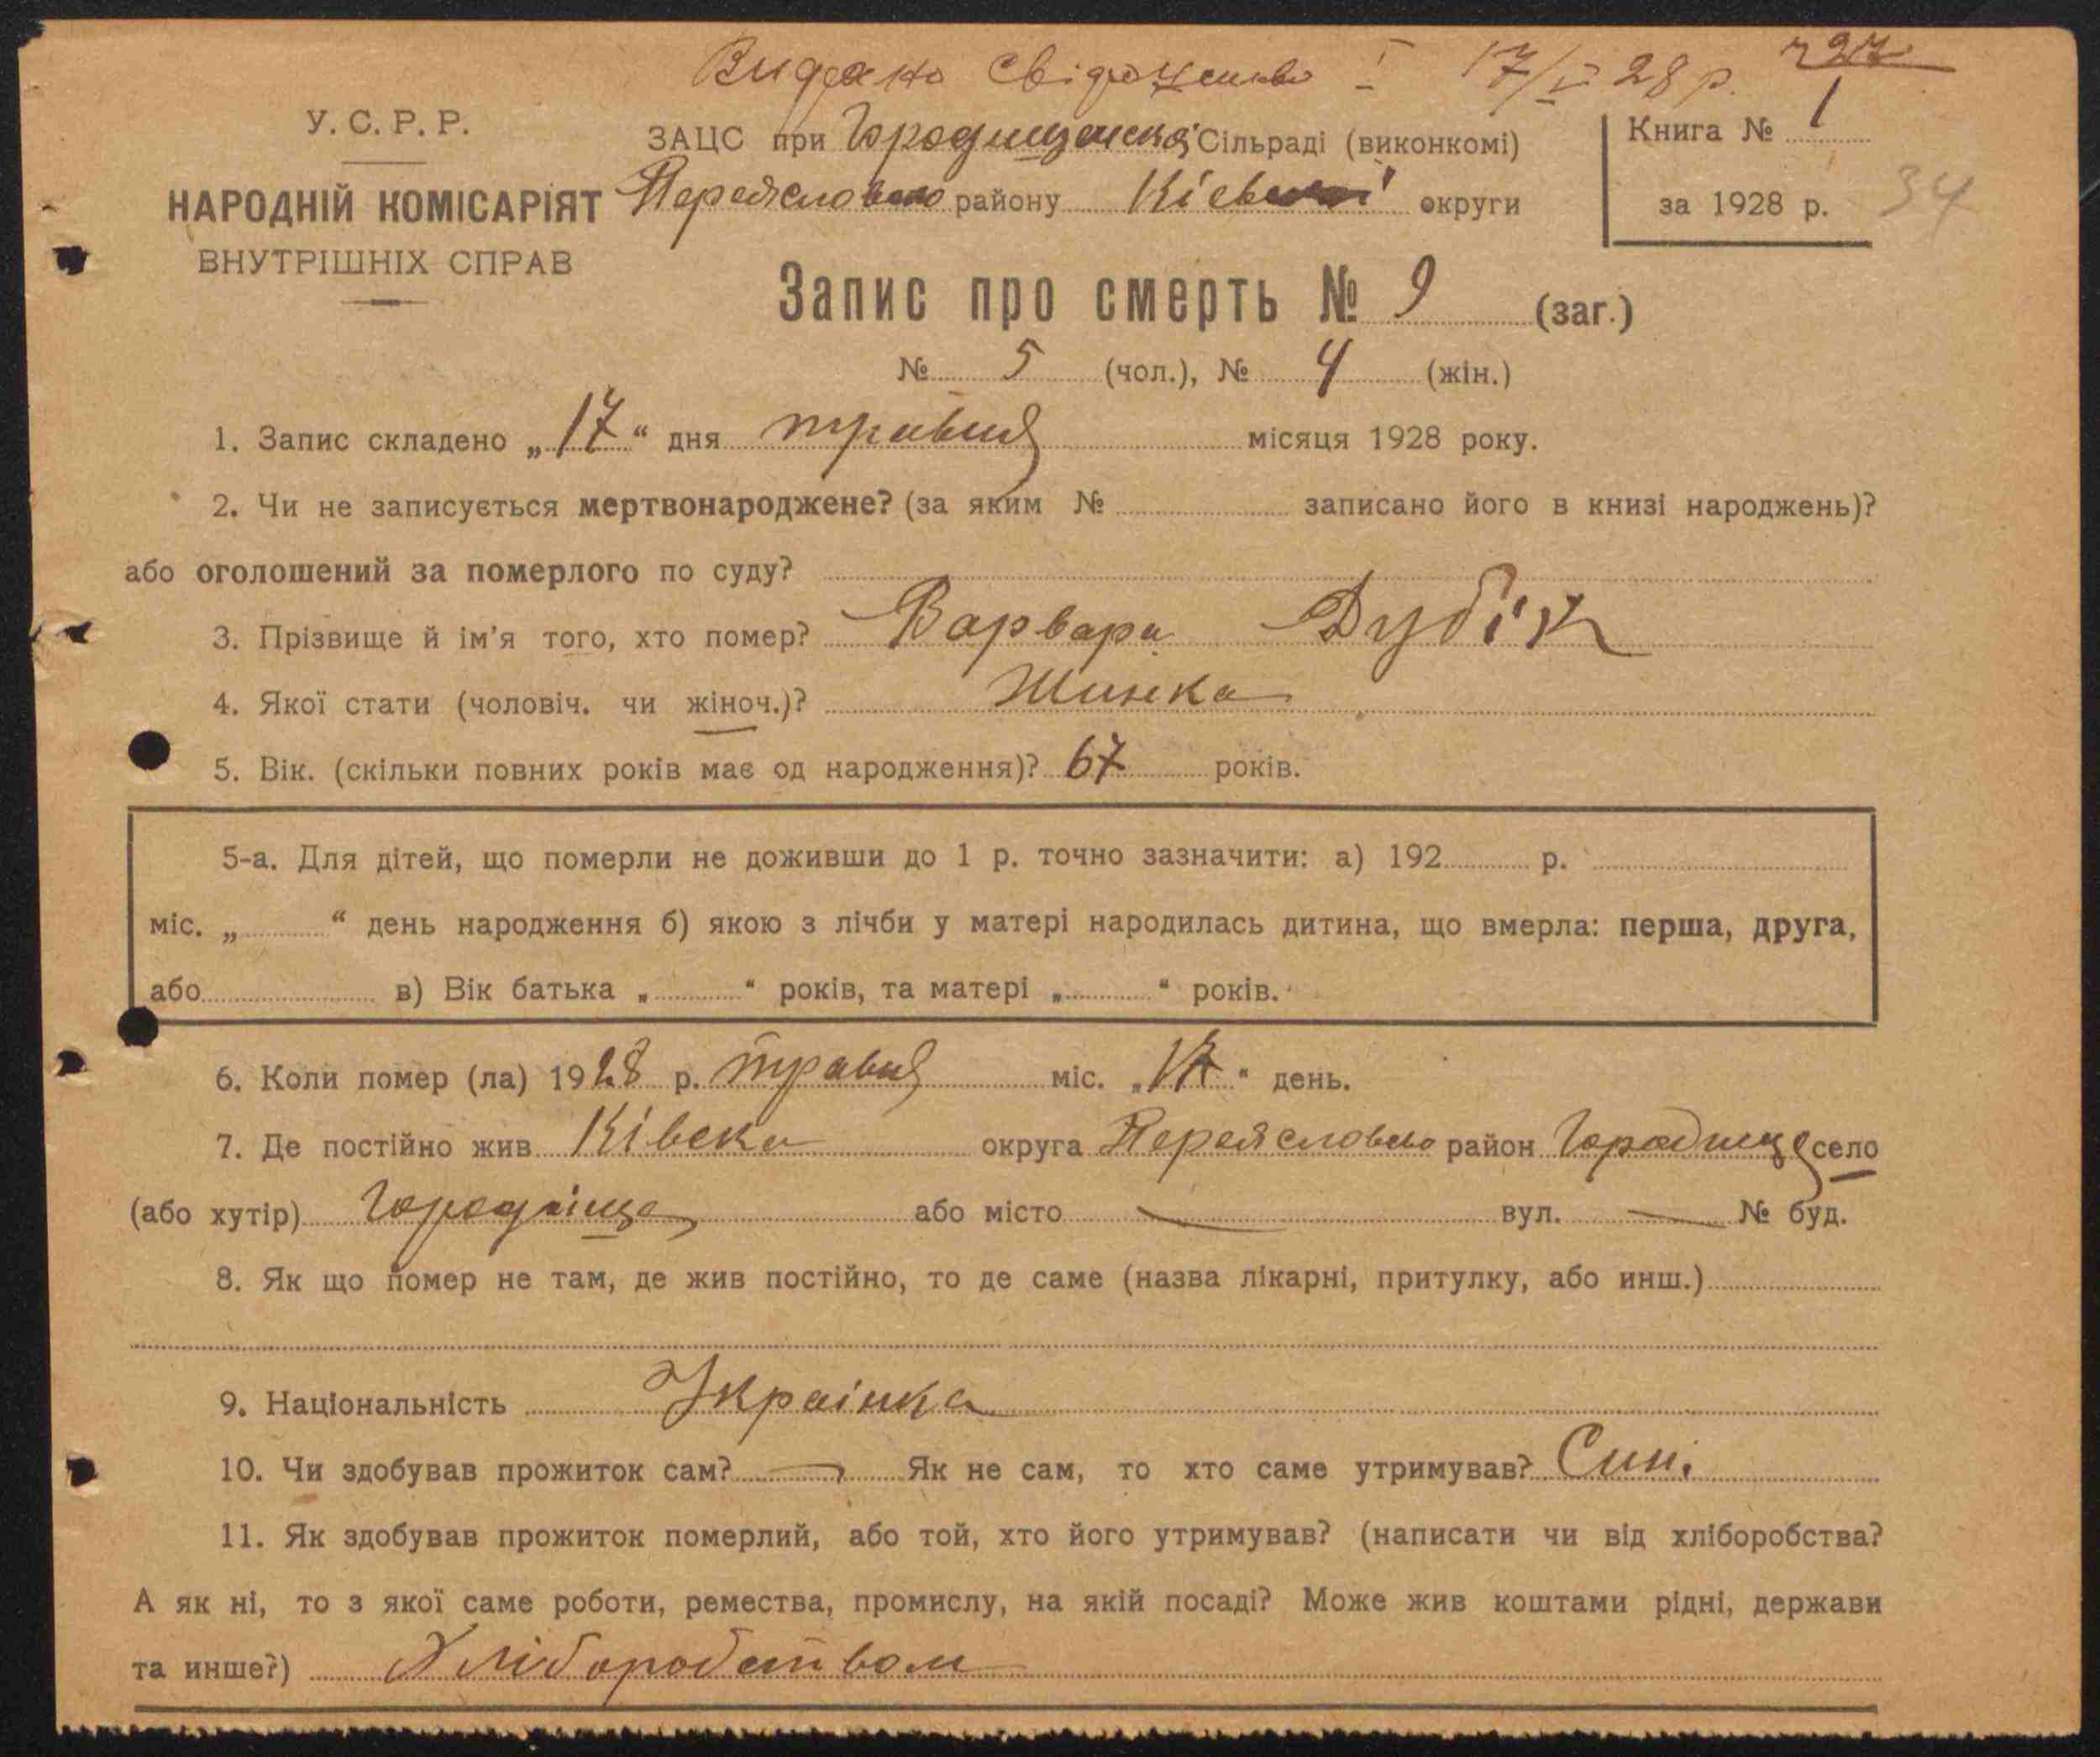 Видано свідоцтво 17/V 28 р. 727
У. С. Р. Р.
НАРОДНІЙ КОМІСАРІЯТ
ВНУТРІШНІХ СПРАВ
ЗАЦС при Городищенскій Сільраді (виконкомі)
Переясловсько району Кіевскоі округи
Книга № 1
за 1928 р. 34
Запис про смерть № 9 (заг.)
№ 5 (чол.), № 4 (жін.)
1. Запис складено „17“ дня травня місяця 1928 року.
2. Чи не записується мертвонароджене? (за яким № записано його в книзі народжень)?
або оголошений за померлого по суду?
3. Прізвище й ім’я того, хто помер? Варвара Дубік
4. Якої стати (чоловіч. чи жіноч.)? Жинка
5. Вік. (скільки повних років має од народження)? 67 років.
5-а. Для дітей, що померли не доживши до 1 р. точно зазначити: а) 192 р.
міс. „ “ день народження б) якою з лічби у матері народилась дитина, що вмерла: перша, друга,
або в) Вік батька „ “ років, та матері „ “ років.
6. Коли помер (ла) 1928 р. травня міс. „17“ день.
7. Де постійно жив Ківска округа Переясловско район Городище село
(або хутір) Городище або місто — вул. — № буд.
8. Як що помер не там, де жив постійно, то де саме (назва лікарні, притулку, або инш.)
9. Національність Украінка
10. Чи здобував прожиток сам? — Як не сам, то хто саме утримував? Син.
11. Як здобував прожиток померлий, або той, хто його утримував? (написати чи від хліборобства?
А як ні, то з якої саме роботи, ремества, промислу, на якій посаді? Може жив коштами рідні, держави
та инше?) Хліборобством